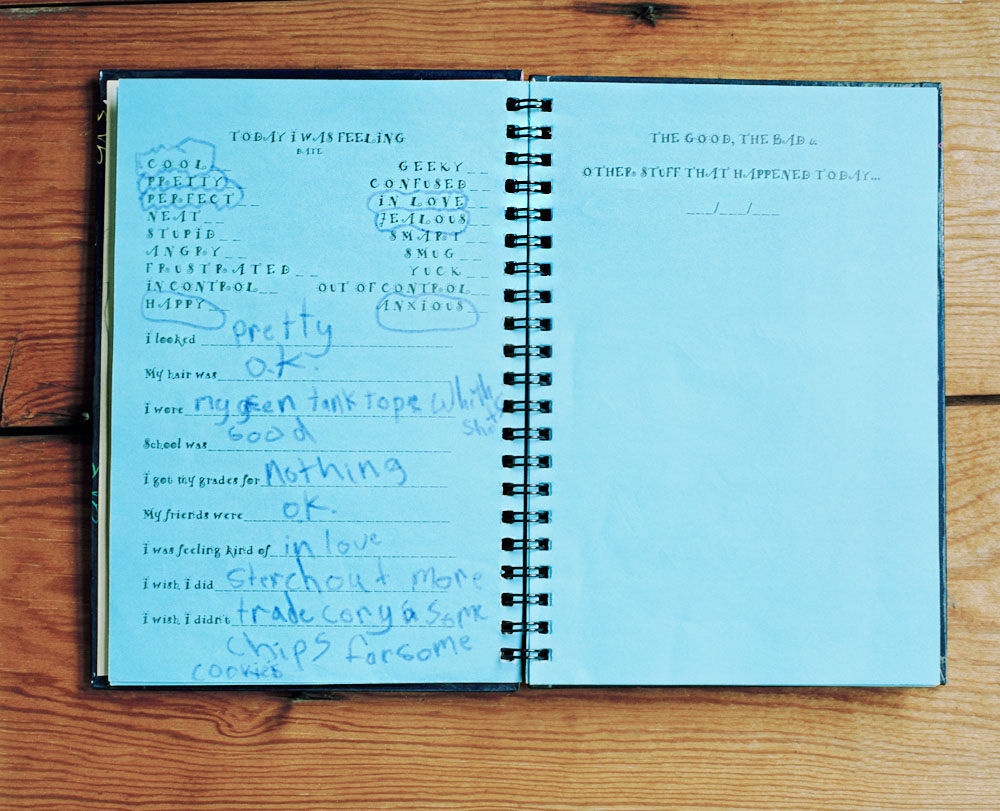 TODAY I WAS FEELING
DATE
COOL__ GEEKY__
PRETTY__ CONFUSED__
PERFECT__ IN LOVE__
NEAT__ JEALOUS__
STUPID__ SMART__
ANGRY__ SMUG__
FRUSTRATED__ YUCK__
IN CONTROL__ OUT OF CONTROL__
HAPPY__ ANXIOUS__
I looked pretty
My hair was O.K.
I wore my green tank tope whith
shorts
School was Good
I got my grades for Nothing
My friends were OK.
I was feeling kind of in love
I wish I did sterchout more
I wish I didn't trade cory a some
chips for some
cookies
THE GOOD, THE BAD &
OTHER STUFF THAT HAPPENED TODAY...
___/___/___